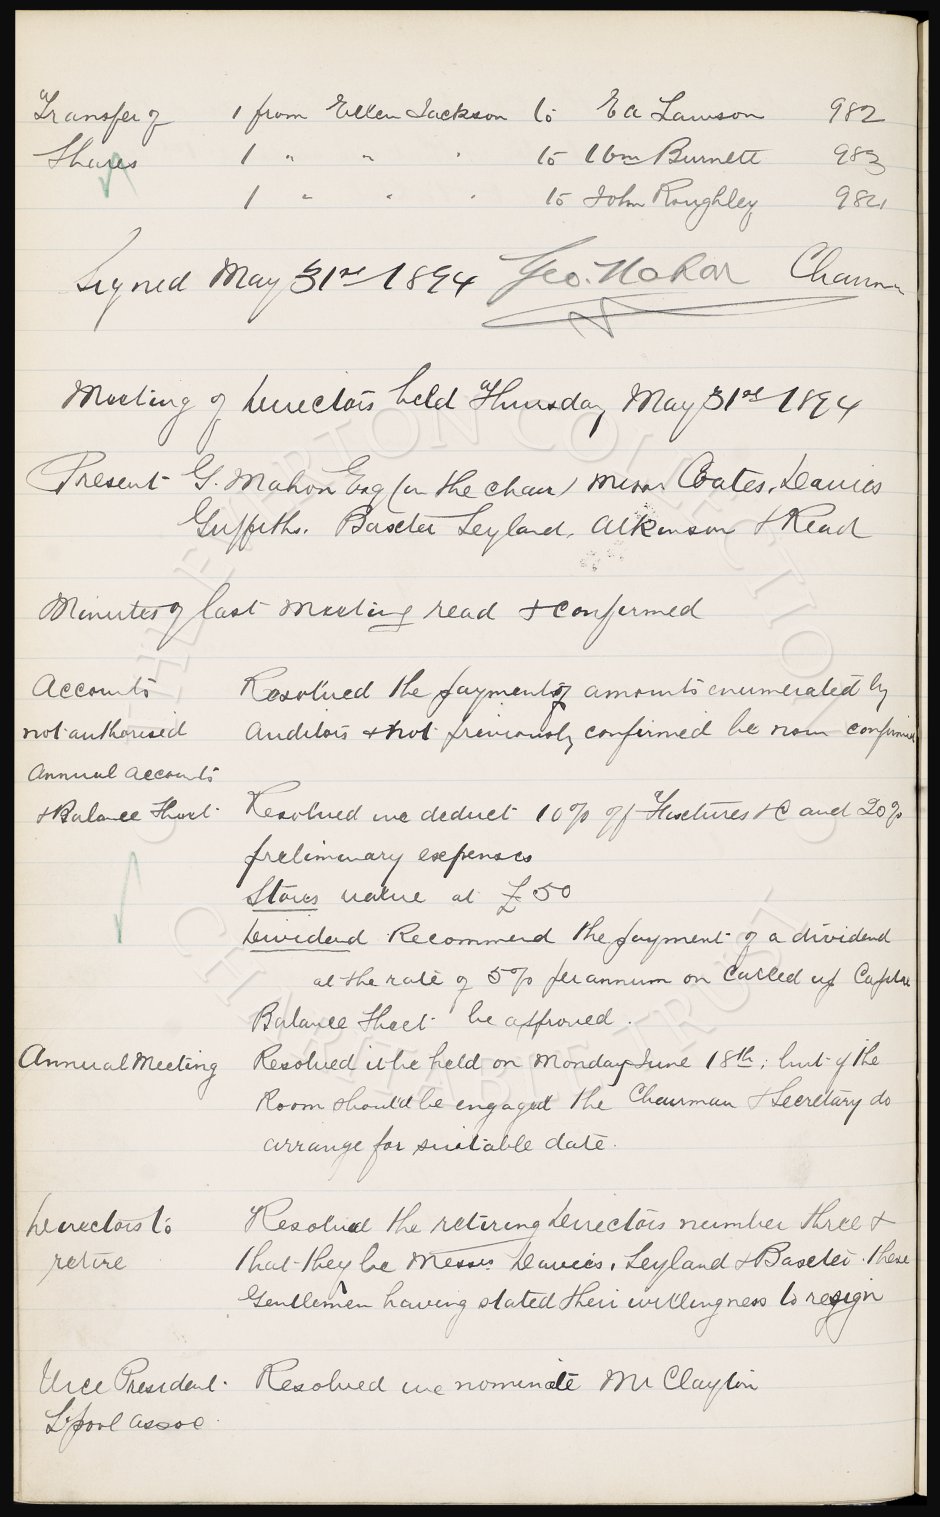 Transfer of 1 from Ellen Jackson to Ea Lawson 982
Shares 1 " " " to Wm Burnett 983
1 " " " to John Roughley 984
Signed May 31st 1894 Geo. Mahon Chairman
Meeting of Directors held Thursday May 31st 1894
Present G. Mahon Esq (in the chair) Messrs Coates, Davies
Griffiths. Baxter Leyland, Atkinson & Read
Minutes of last Meeting read & confirmed
Accounts Resolved the payments of amounts enumerated by
not authorised Auditors & not previously confirmed be now confirmed
Annual accounts
& Balance Sheet Resolved we deduct 10% off Fixtures &c and 20%
preliminary expenses
Stores value at £50
Dividend Recommend the payment of a dividend
at the rate of 5% per annum on Called up Capital
Balance Sheet be approved.
Annual Meeting Resolved it be held on Monday June 18th; but if the
Room should be engaged the Chairman & Secretary do
arrange for suitable date.
Directors to Resolved the retiring Directors number three &
retire that they be Messrs Davies, Leyland & Baxter. these
Gentlemen having stated their willingness to resign
Vice President Resolved we nominate Mr Clayton
L'pool assoc
THE EVERTON COLLECTION
CHARITABLE TRUST